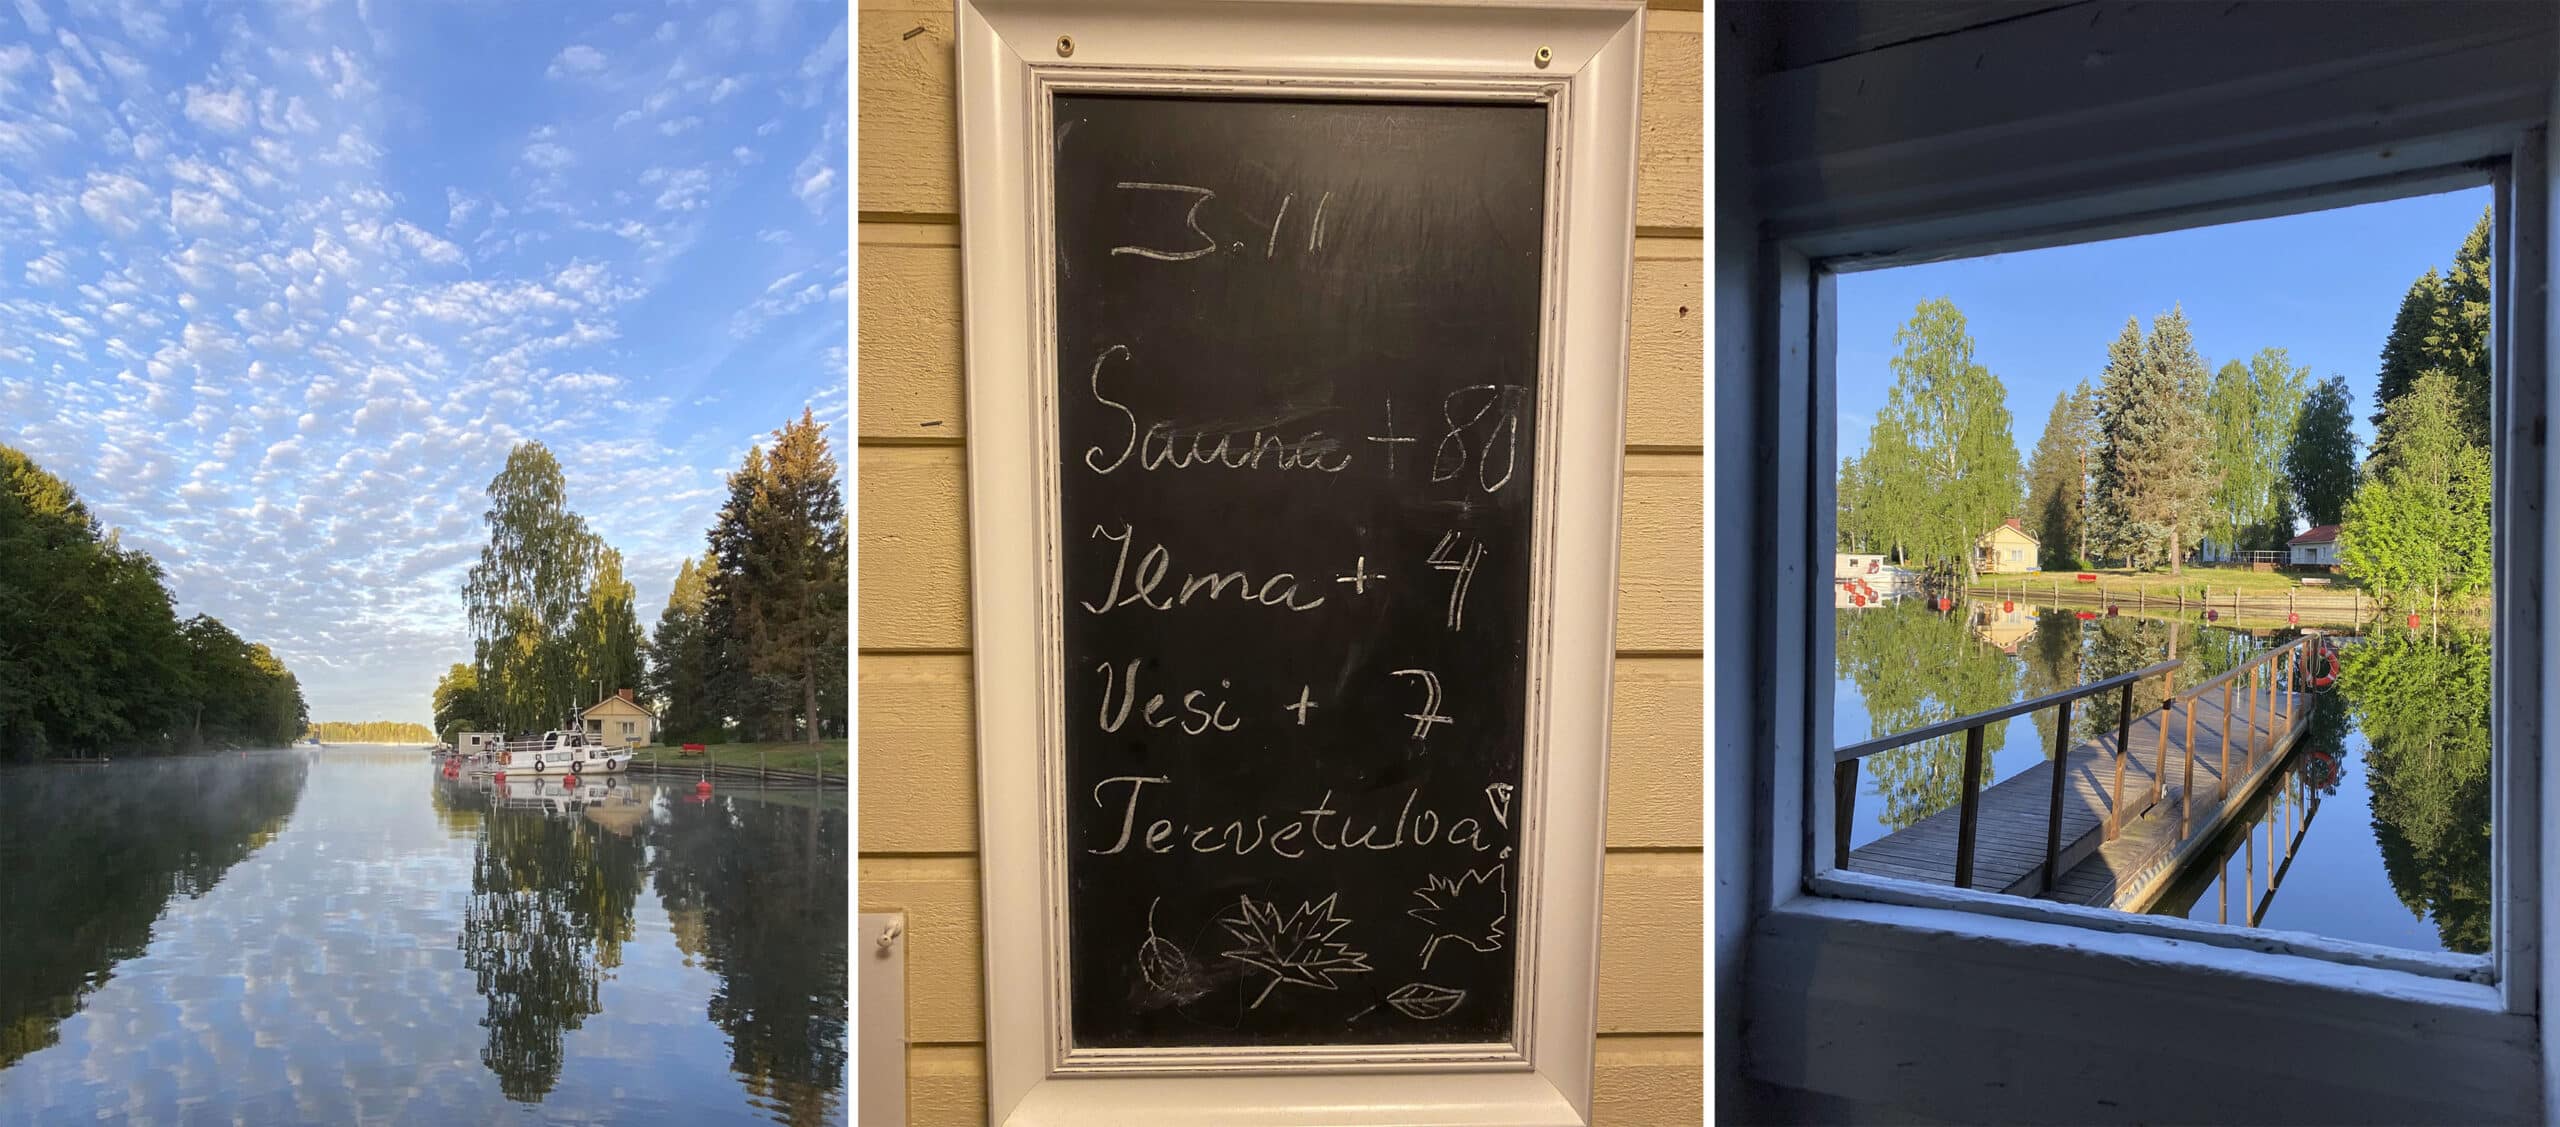 3.11
Sauna +80
Ilma + 4
Vesi + 7
Tervetuloa!